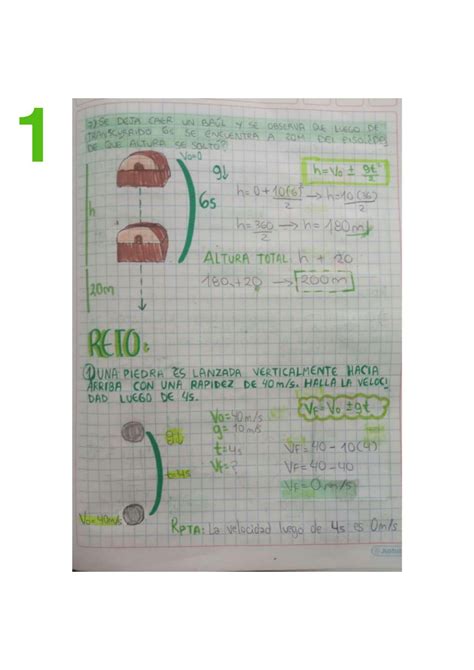 1
SE DEJA CAER UN BAÚL Y SE OBSERVA QUE LUEGO DE
TRANSCURRIDO 6s SE ENCUENTRA A 20M DEL PISO
DE QUE ALTURA SE SOLTÓ?
V₀=0
g↓
h=V₀ ± gt²/2
6s
h= 0+ 10(6)²/2 → h=10(36)/2
h
h= 360/2 → h= 180m
ALTURA TOTAL: h + 20
20m
180+20 → 200m
RETO:
① UNA PIEDRA ES LANZADA VERTICALMENTE HACIA
ARRIBA CON UNA RAPIDEZ DE 40m/s. HALLA LA VELOCI
DAD LUEGO DE 4s.
VF=V₀ ±gt
V₀=40m/s
g= 10m/s
g↓
t=4s
VF=40 - 10(4)
t=4s
VF=?
VF=40-40
VF=0m/s
V₀=40m/s
RPTA: La velocidad luego de 4s es 0m/s